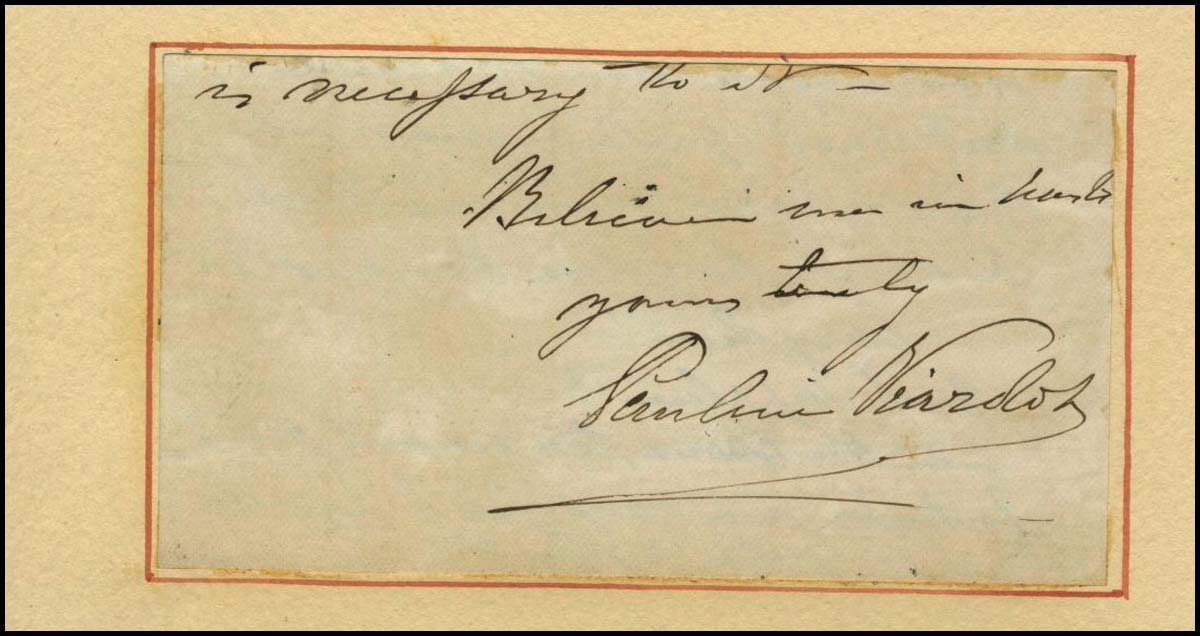 is necessary to it —
Believe me in haste
yours truly
Pauline Viardot